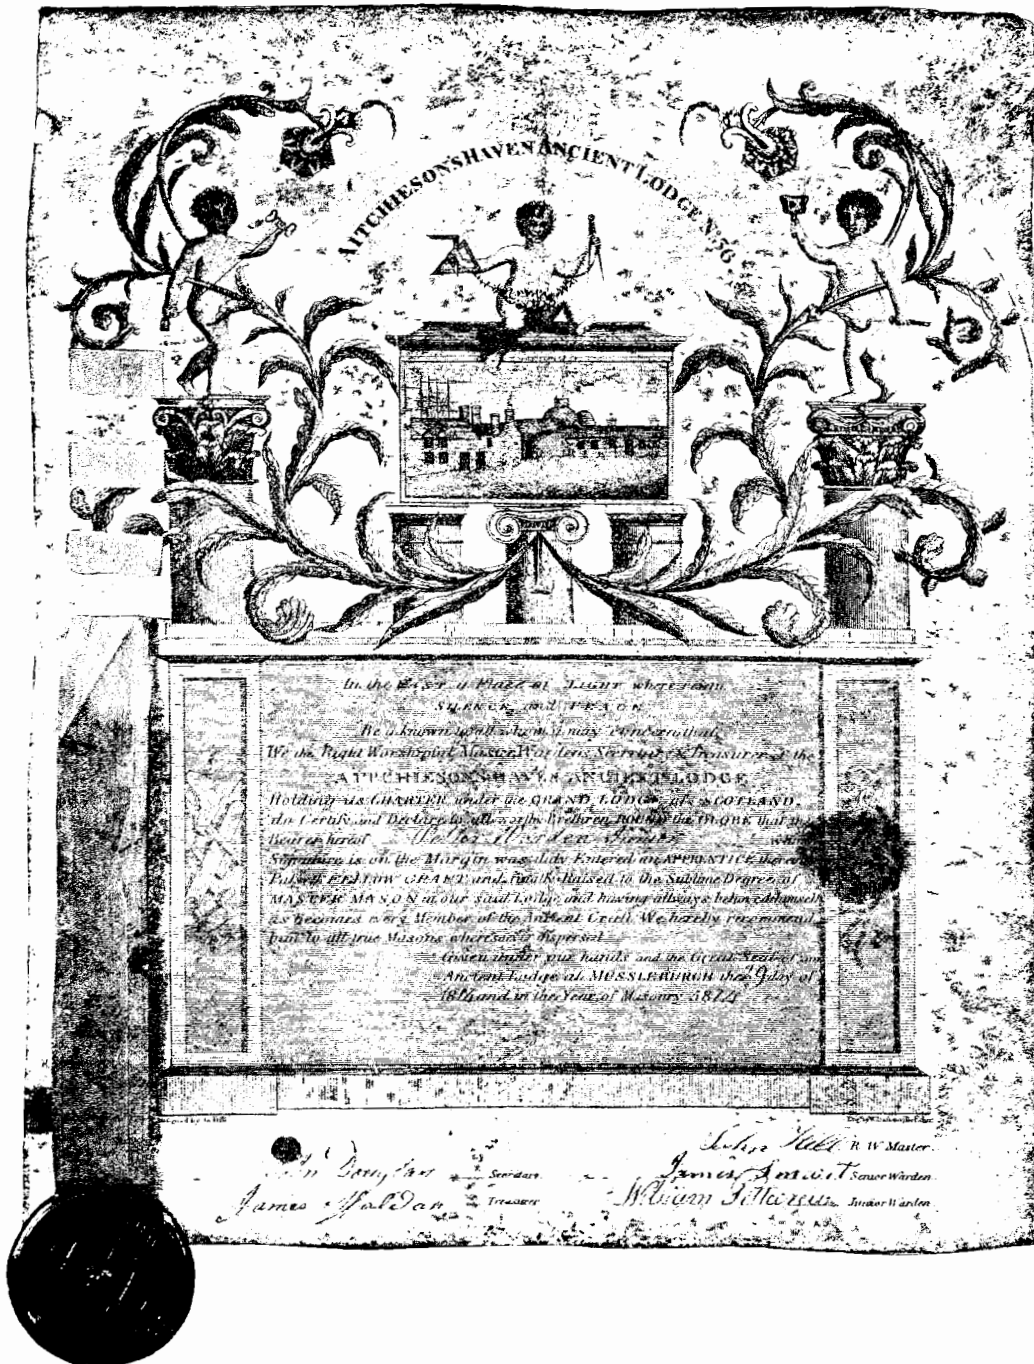 AITCHIESONSHAVEN ANCIENT LODGE No. 56.
In the EAST a Place of LIGHT where reign
SILENCE and PEACE
Be it known to all whom it may concern that
We the Right Worshipful Master Wardens Secretary & Treasurer of the
AITCHIESONS HAVEN ANCIENT LODGE
Holding its CHARTER under the GRAND LODGE of SCOTLAND,
do Certify and Declare to all worthy Brethren ROUND the GLOBE that the
Bearer hereof who
Signature is on the Margin was duly Entered an APPRENTICE
Passed FELLOW CRAFT and finally Raised to the Sublime Degree of
MASTER MASON in our said Lodge and having allways behaved himself
as becomes every Member of the Antient Craft We hereby recommend
him to all true Masons wheresoever dispersed
Given under our hands and the Great Seal of our
Ancient Lodge at MUSSLEBURGH the 19 day of
1814 and in the Year of Masonry 5814
John Hill R. W Master.
John Douglas Secretary
James Smart Senior Warden
James Haldan Treasurer
William Junior Warden